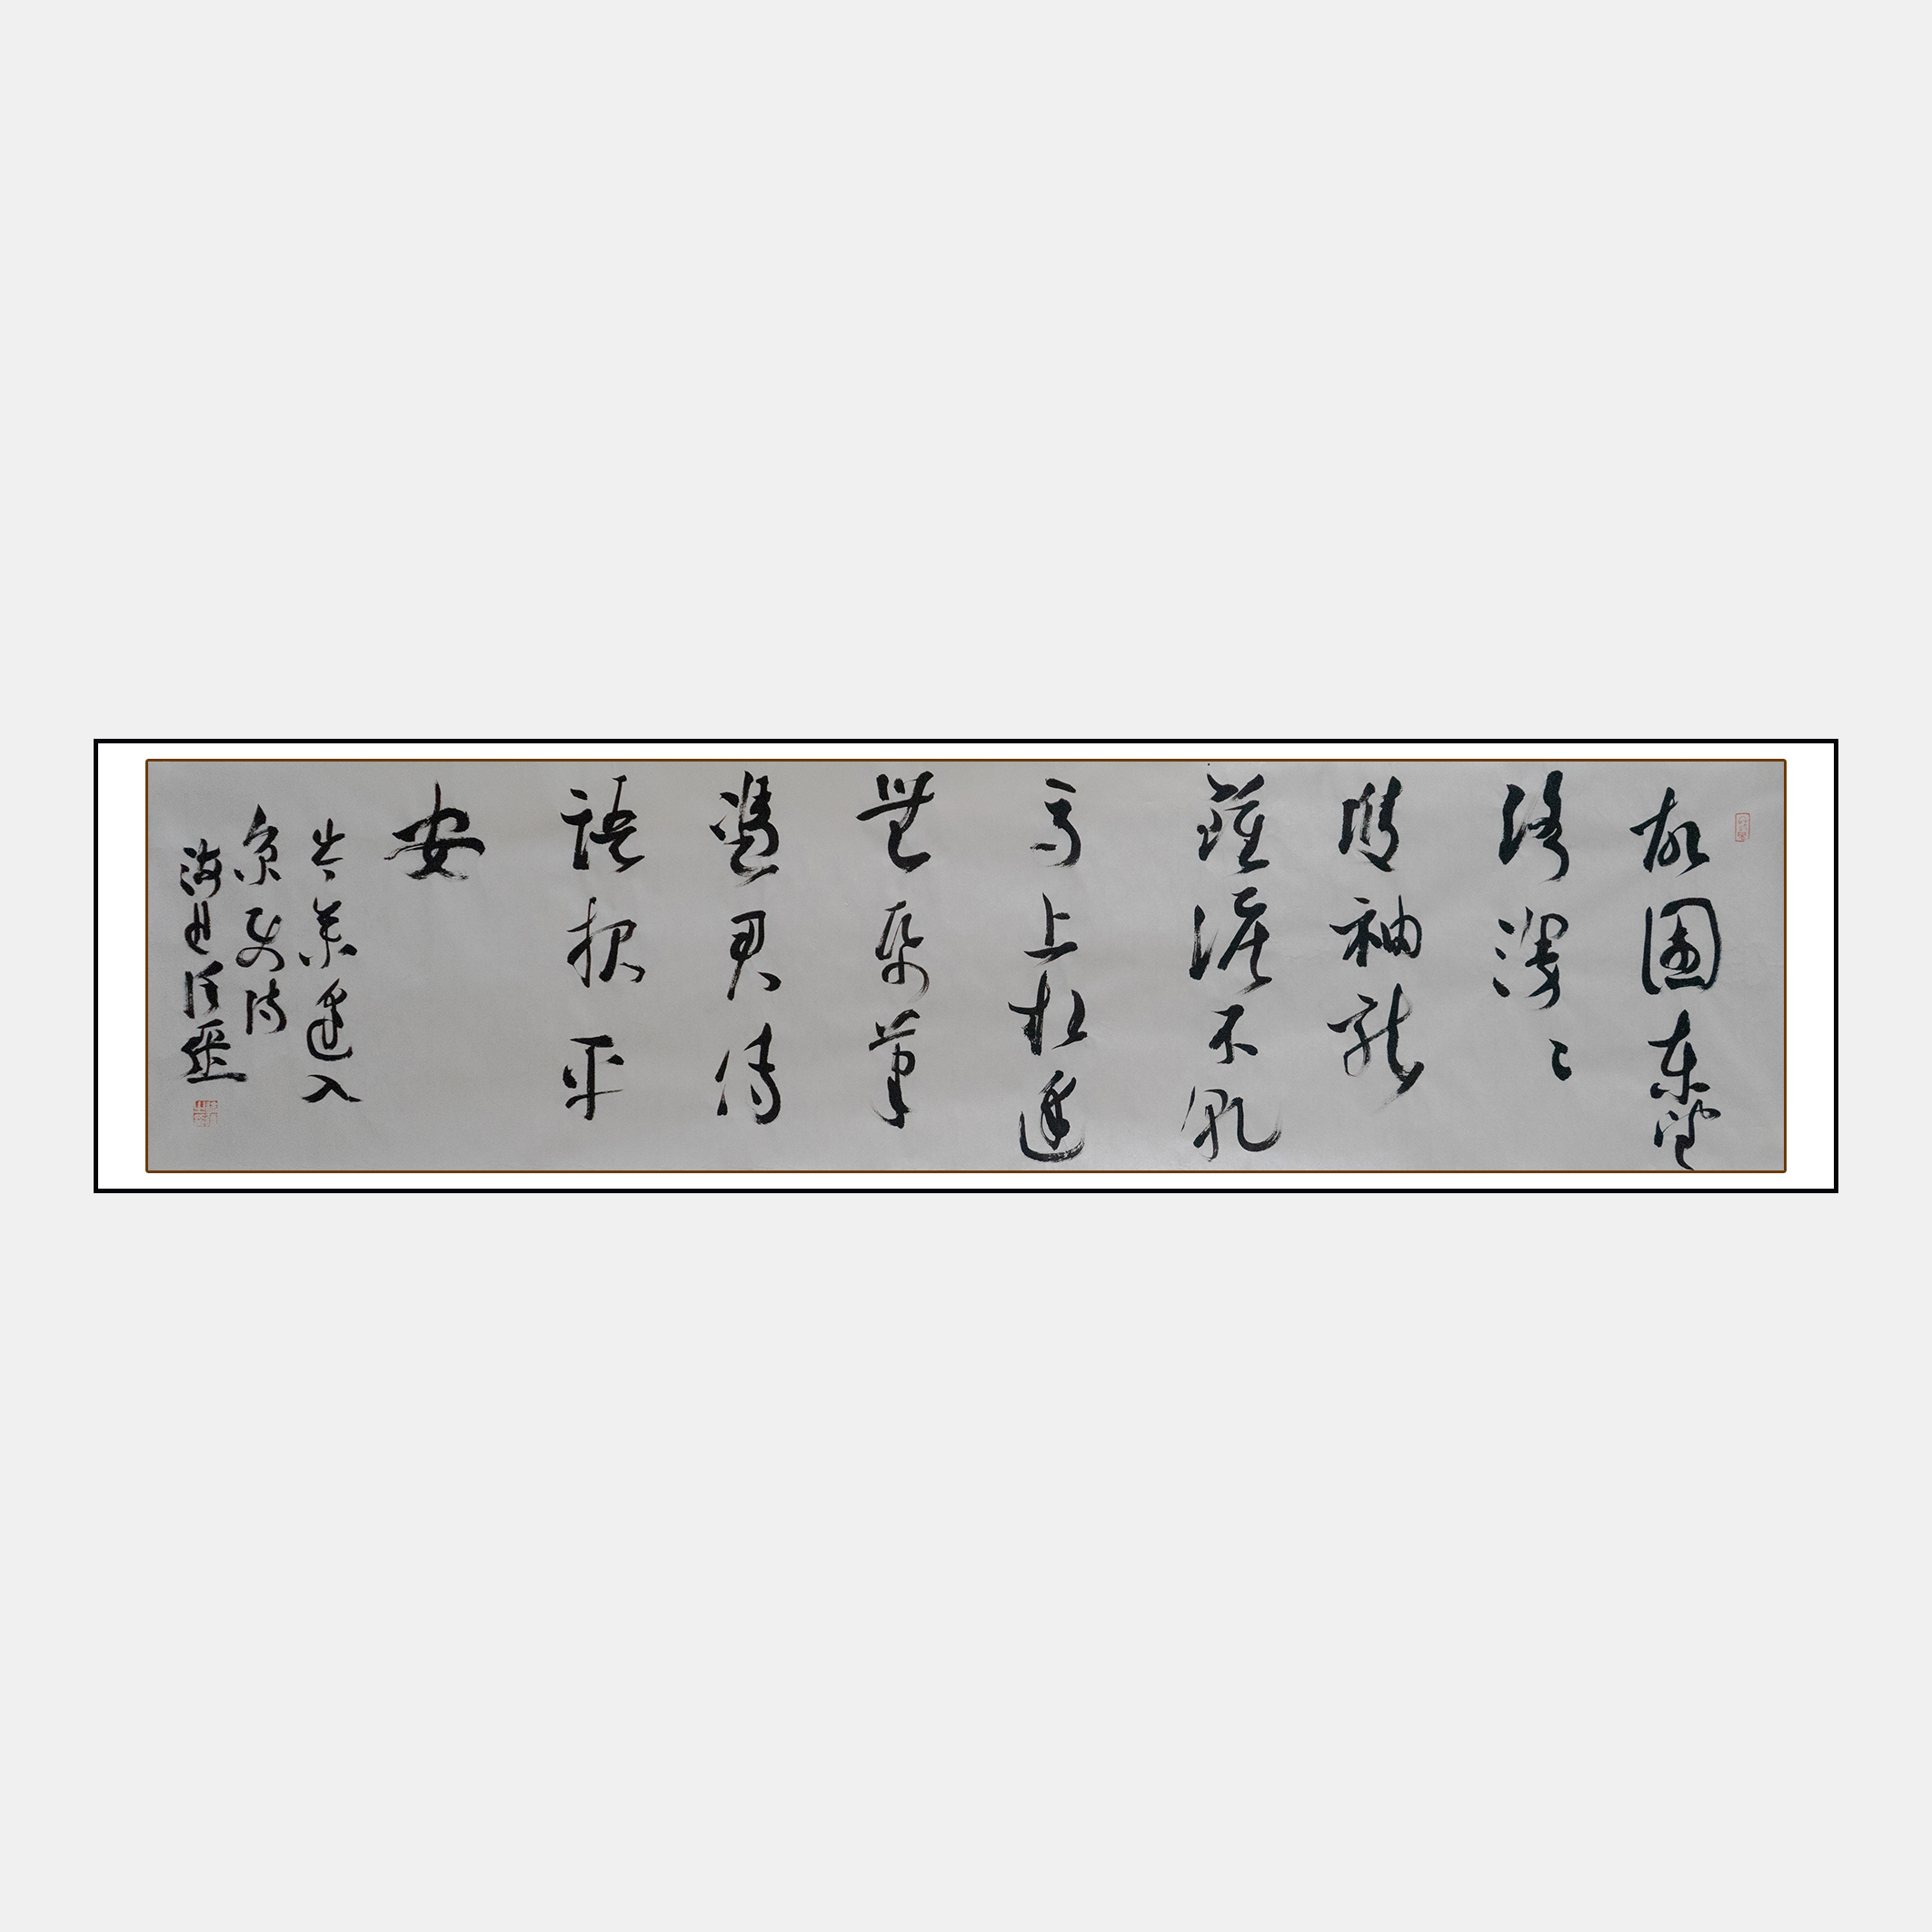 故園东望
路漫々
雙袖龍
鍾淚不乾
馬上相逢
無紙筆
憑君傳
語报平
安
岑參逢入
京使詩